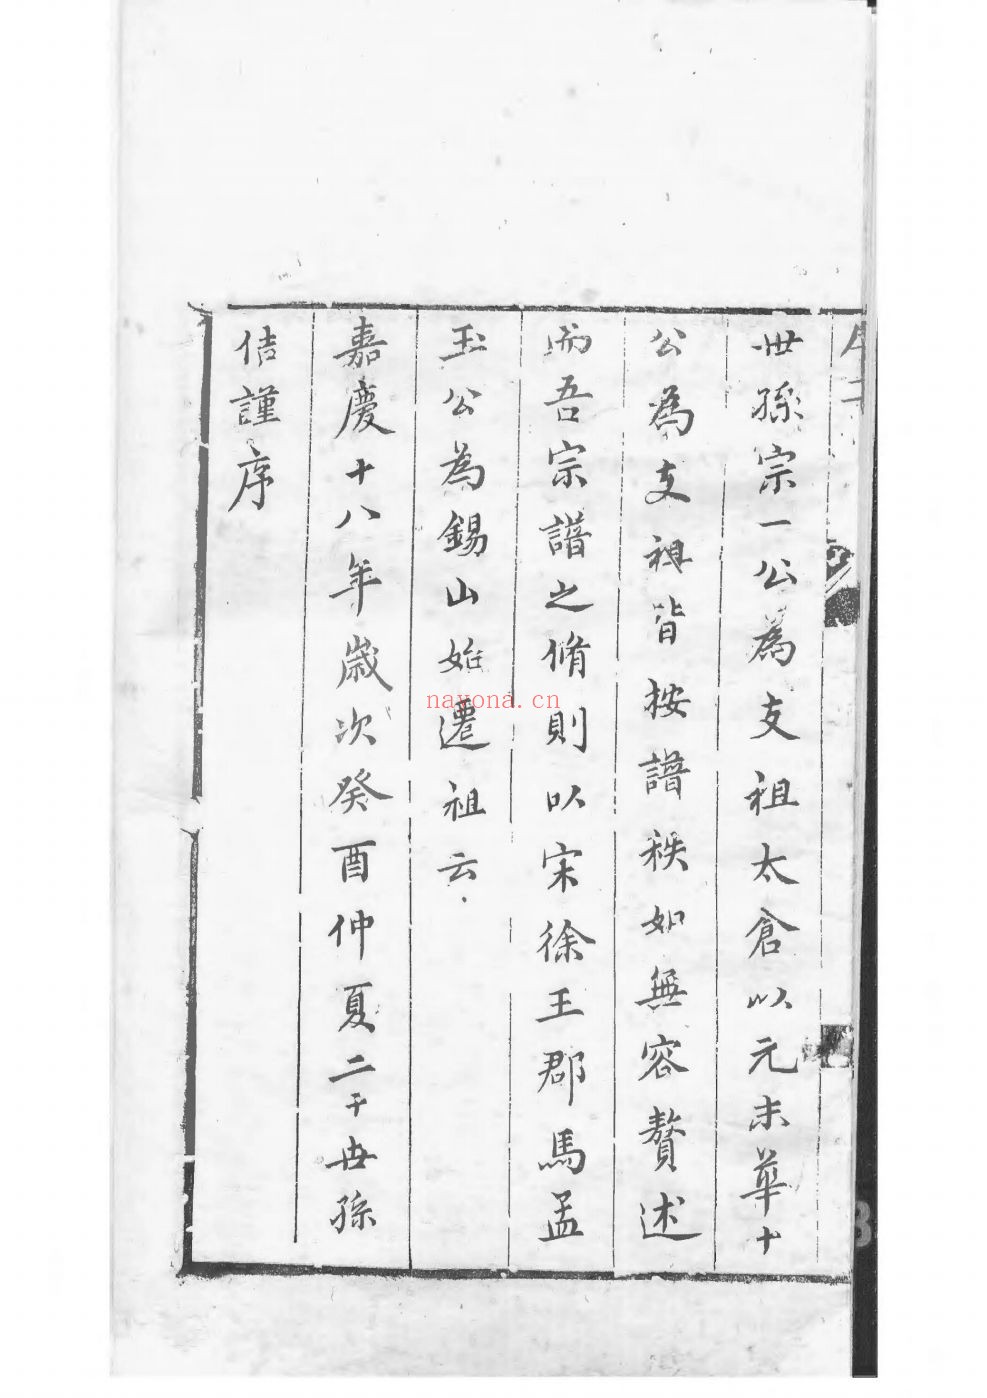 世孫宗一公為支祖太倉以元末華十
公為支祖皆按譜秩如無容贅述
而吾宗譜之脩則以宋徐王郡馬孟
玉公為錫山始遷祖云
嘉慶十八年歲次癸酉仲夏二十世孫
佶謹序
nayona.cn